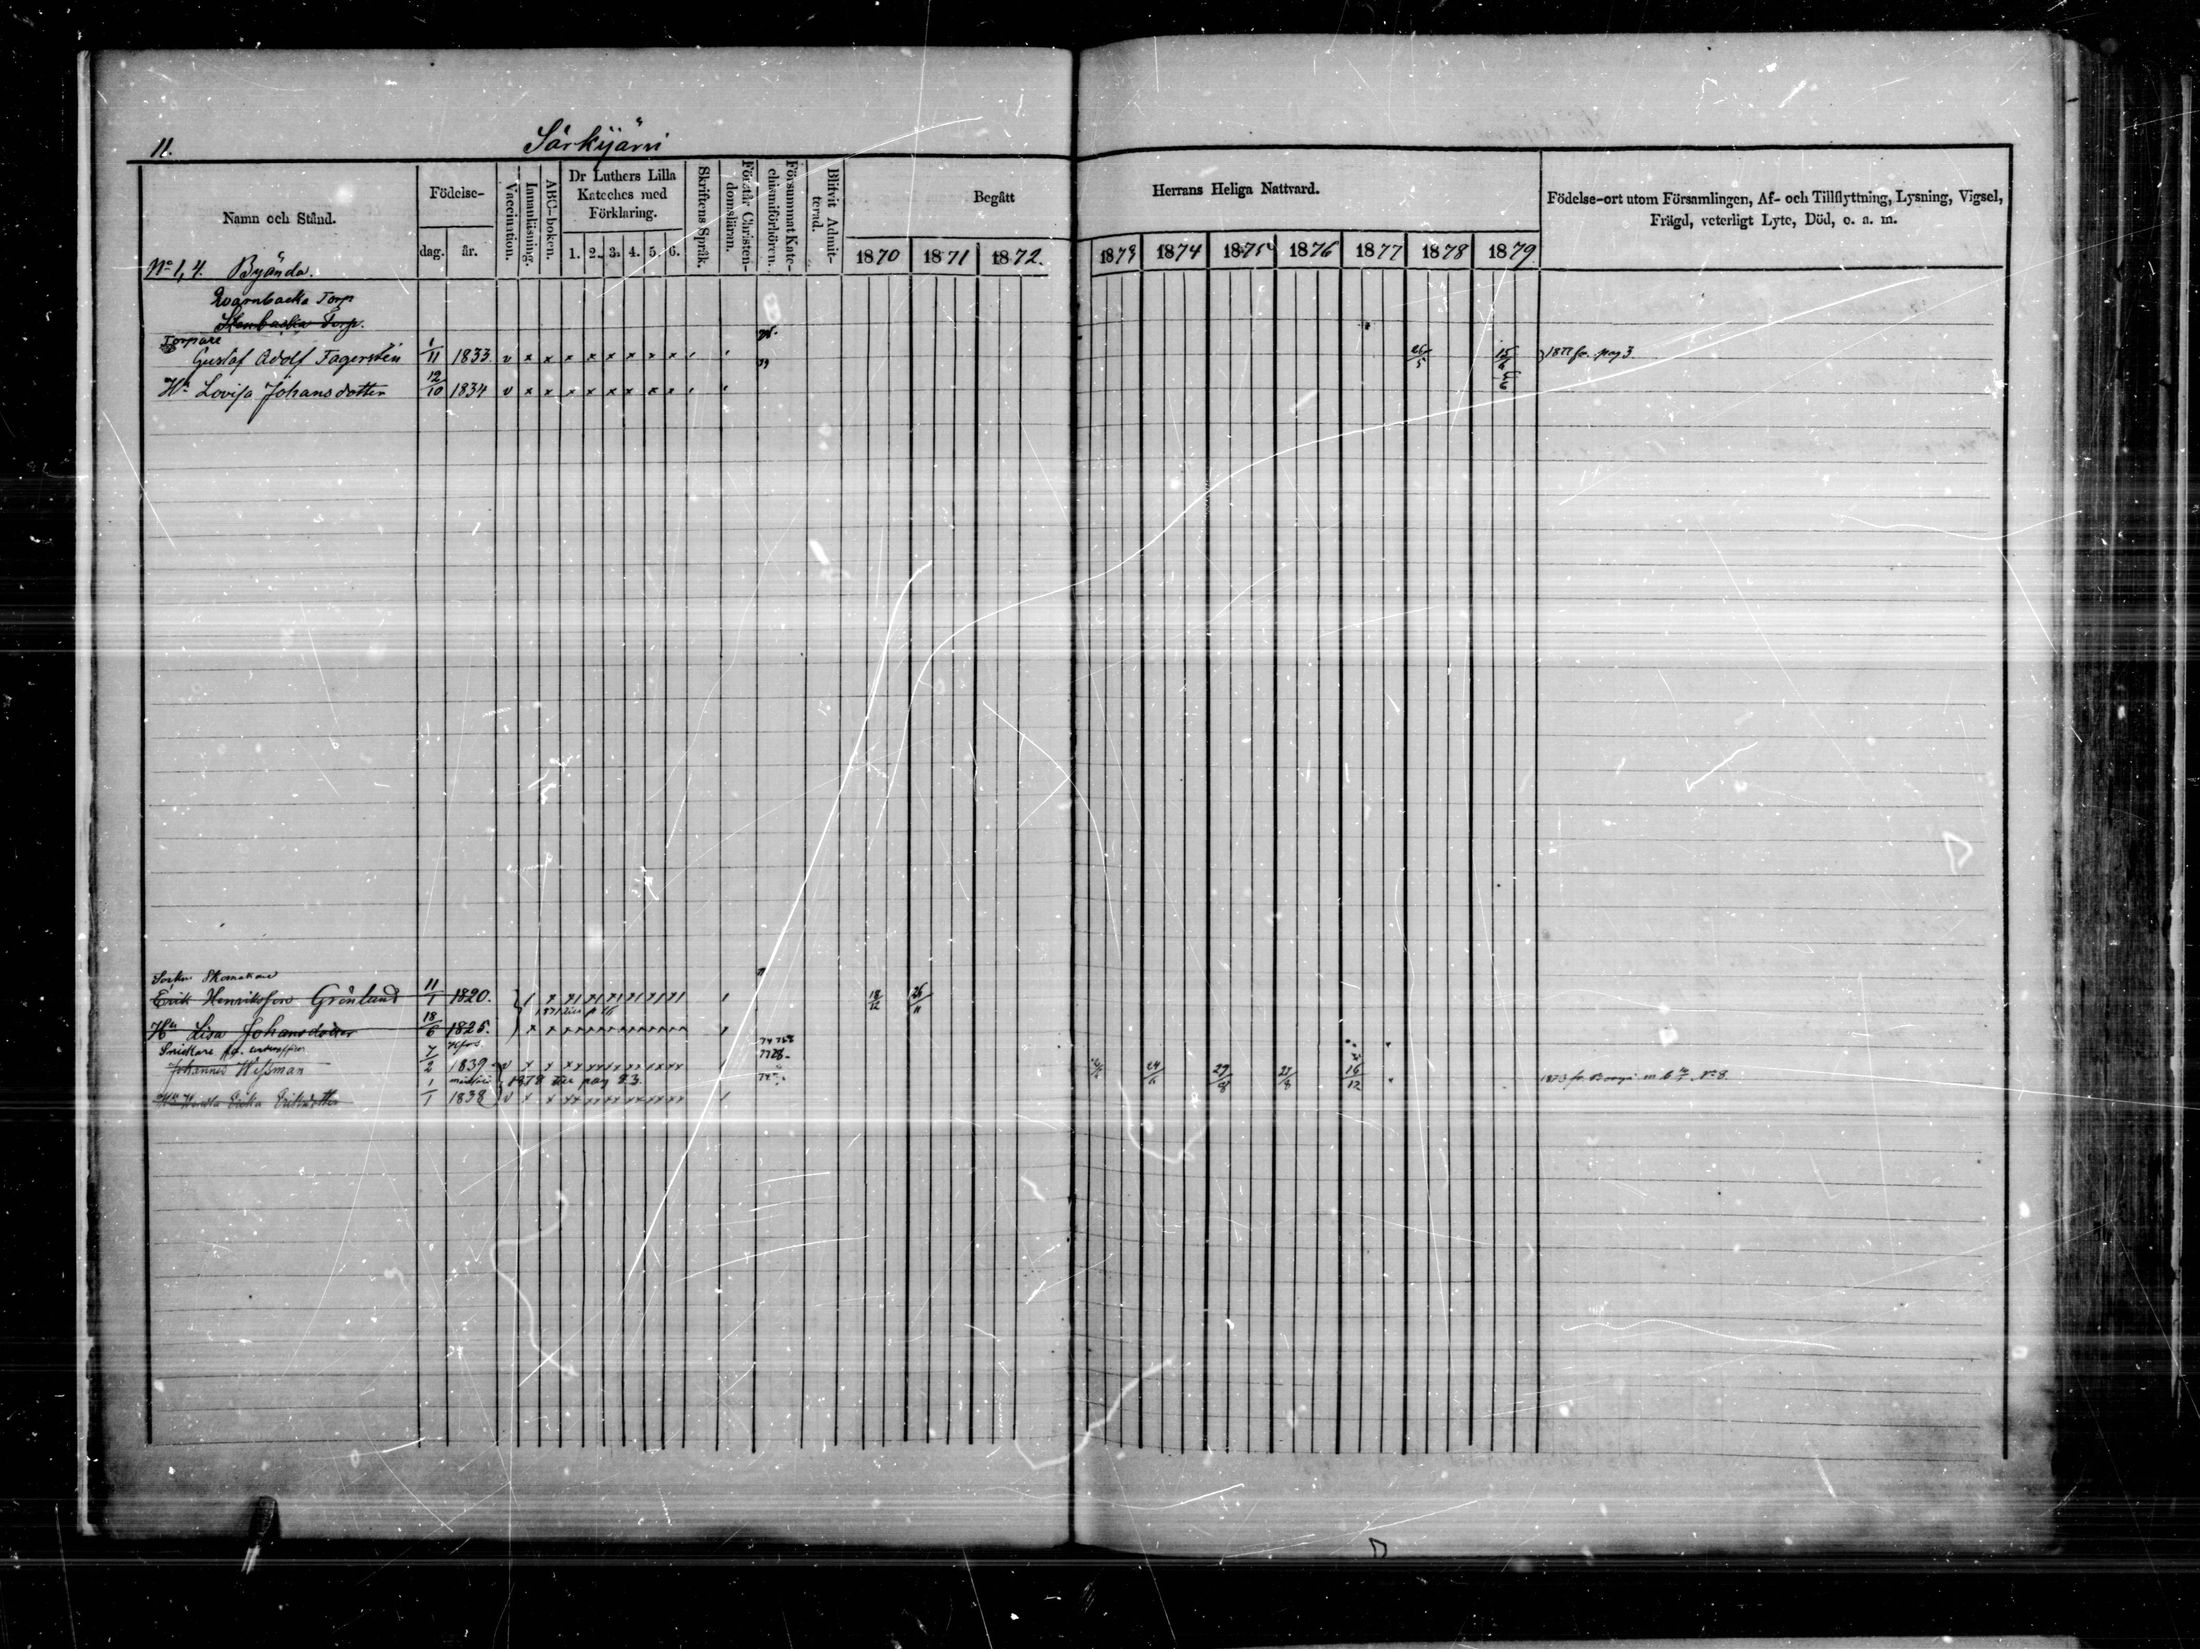 11. Särkijärvi
Namn och Stånd.
Födelse-
dag. år.
Vaccination.
Innanläsning.
ABC-boken.
Dr Luthers Lilla
Kateches med
Förklaring.
1. 2. 3. 4. 5. 6.
Skriftens Språk.
Förstår Christen-
domsläran.
Försummat Kate-
chismiförhören.
Blifvit Admit-
terad.
Begått Herrans Heliga Nattvard.
1870 1871 1872. 1873 1874 1875 1876 1877 1878 1879
Födelse-ort utom Församlingen, Af- och Tillflyttning, Lysning, Vigsel,
Frägd, veterligt Lyte, Död, o. a. m.
No 1, 4. Byända.
Qvarnbacka Torp
Stenbacka Torp.
Torpare
Gustaf Adolf Fagerstén 1/11 1833. v x x x x x x x x 26/5 15/6 1877 fr. pag 3
Hu Lovisa Johansdotter 12/10 1834 v x x x x x x x x
Skomakare
Erik Henriksson Grönlund 11/1 1820. 18/12 26/11
1871
Hu Lisa Johansdotter 18/6 1825.
Snickare
Johannes Wessman 7/2 1839 v 24/6 29/8 16/12 1873 fr. Borgå No 8
1878 till pag 23.
Erika Eriksdotter 1/1 1838 v